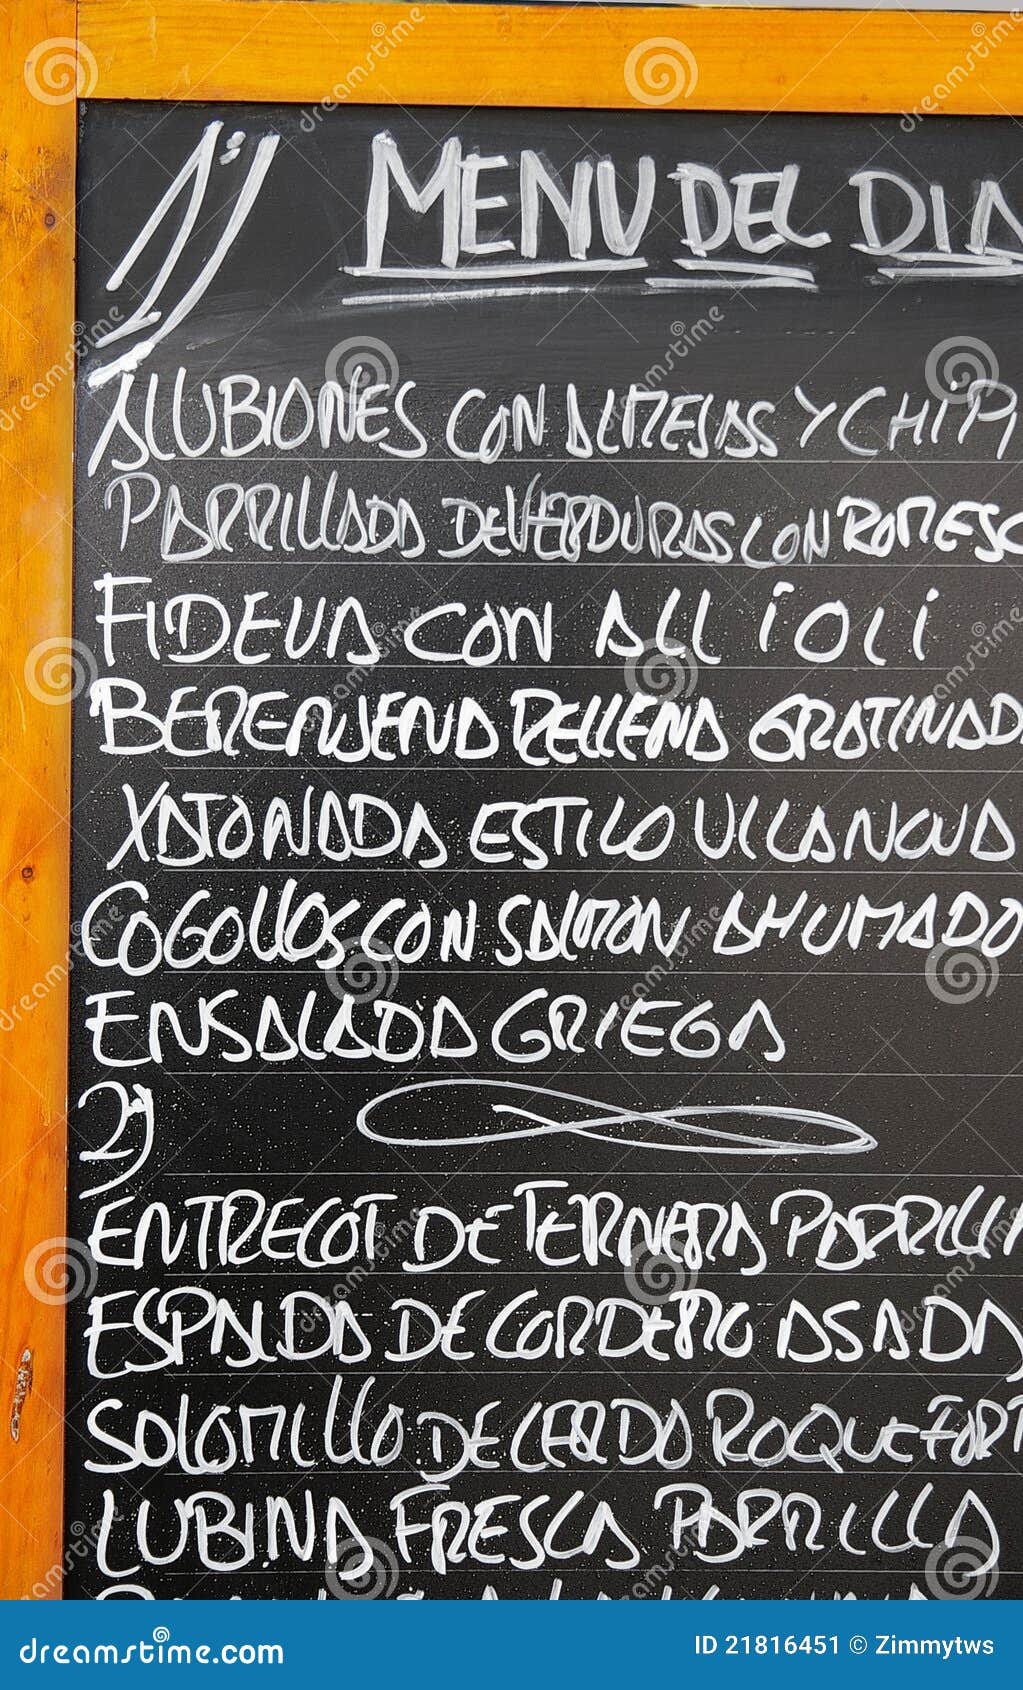 1) MENU DEL DIA
ALUBIONES CON ALMEJAS Y CHIPI
PARRILLADA DE VERDURAS CON ROMESC
FIDEUA CON ALL i OLi
BERENJENA RELLENA GRATINAD
XATONADA ESTILO VILLANOVA
COGOLLOS CON SALMON AHUMADO
ENSALADA GRIEGA
2)
ENTRECOT DE TERNERA PARRILL
ESPALDA DE CORDERO ASADA
SOLOMILLO DE CERDO ROQUEFORT
LUBINA FRESCA PARRILLA
dreamstime.com
ID 21816451 © Zimmytws